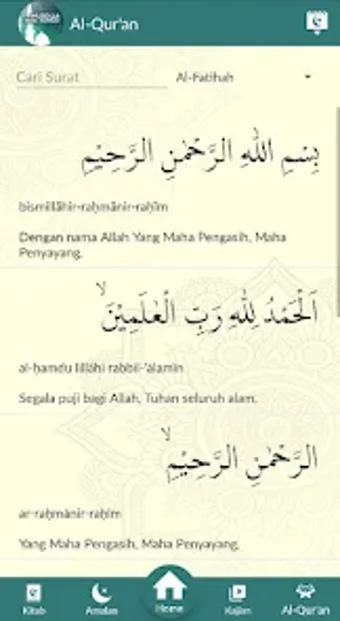 Al-Qur'an
Cari Surat
Al-Fatihah
بِسْمِ اللّٰهِ الرَّحْمٰنِ الرَّحِيْمِ
bismillāhir-raḥmānir-raḥīm
Dengan nama Allah Yang Maha Pengasih, Maha
Penyayang.
اَلْحَمْدُ لِلّٰهِ رَبِّ الْعٰلَمِيْنَۙ
al-ḥamdu lillāhi rabbil-'ālamīn
Segala puji bagi Allah, Tuhan seluruh alam,
الرَّحْمٰنِ الرَّحِيْمِۙ
ar-raḥmānir-raḥīm
Yang Maha Pengasih, Maha Penyayang,
Kitab
Amalan
Home
Kajian
Al-Qur'an